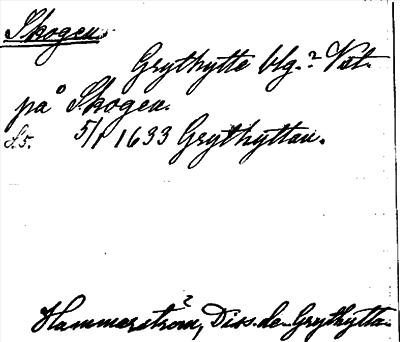 Skogen.
Grythytte blg.? Vät.
på Skogen.
S. 5/1 1633 Grythyttan.
Hammarström, Diss. de Grythytta.